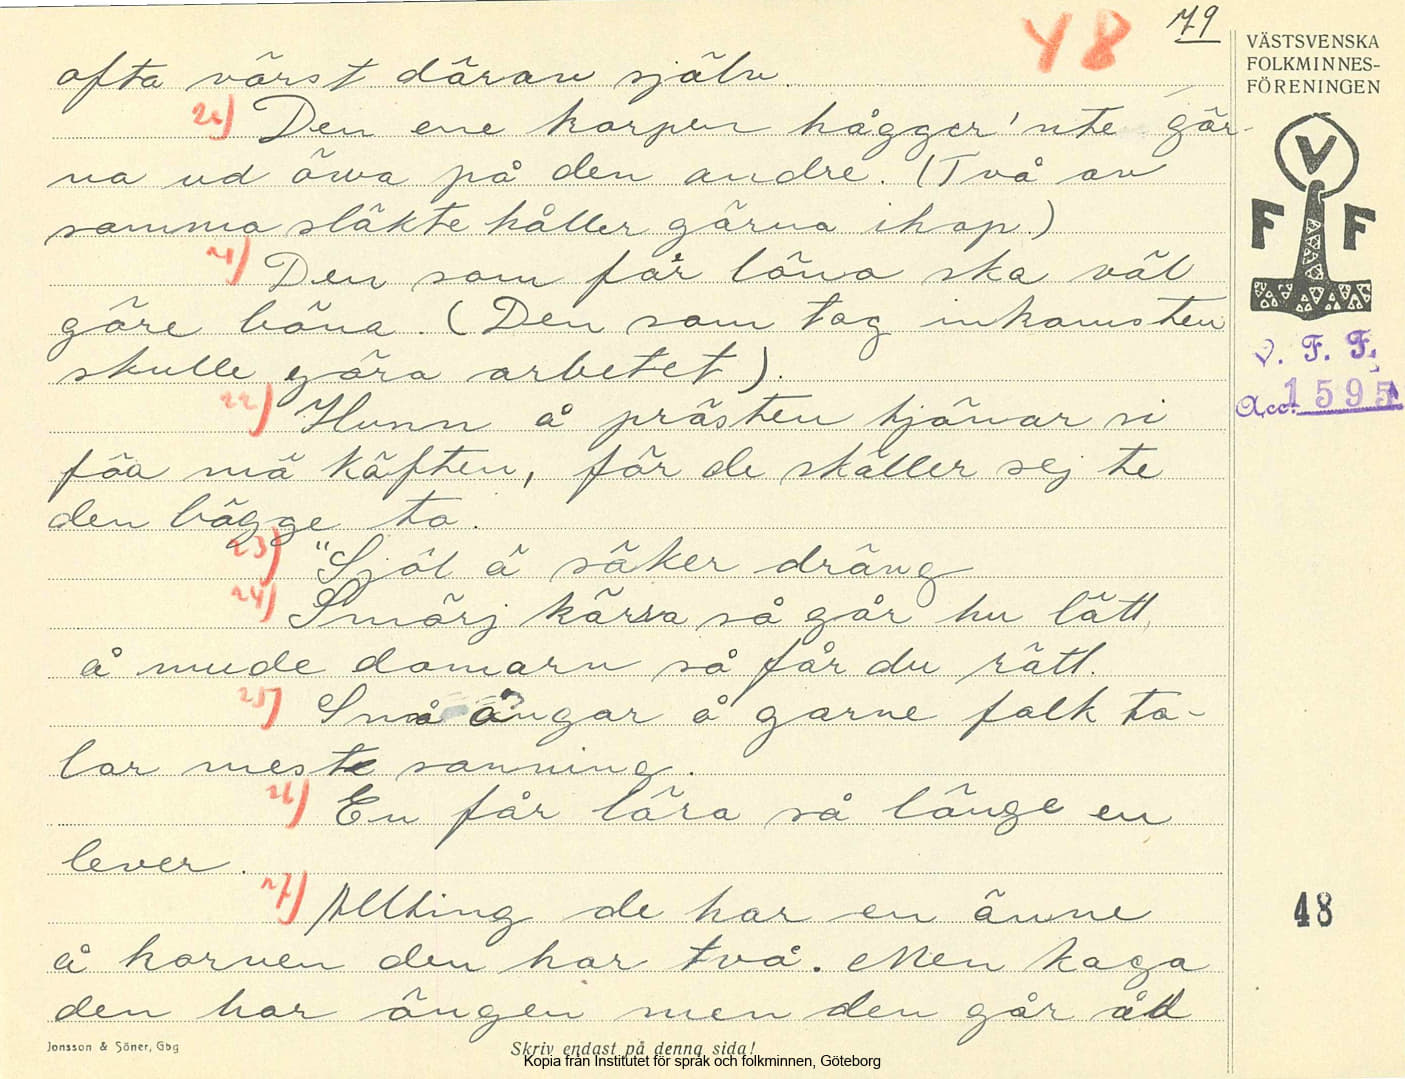 Y8 79
VÄSTSVENSKA
FOLKMINNES-
FÖRENINGEN
V
F F
V. F. F.
Acc. 1595
48
ofta värst däran själv.
20) Den ene korpen hågger 'nte gär-
na ud öwa på den andre. (Två av
samma släkte håller gärna ihop.)
21) Den som får löna ska väl
göre böna. (Den som tog inkomsten
skulle göra arbetet).
22) Hunn å prästen tjänar si
föa mä käften, för de skäller sej te
den bägge to.
23) "Sjöl ä säker dräng
24) Smörj kärra så går hu lätt
å mude domarn så får du rätt.
25) Små ångar å garne falk ta-
lar meste sanning.
26) En får lära så länge en
lever.
27) Allting de har en änne
å korven den har två. Men kaga
den har ängen men den går åd
Jonsson & Söner, Gbg
Skriv endast på denna sida!
Kopia från Institutet för språk och folkminnen, Göteborg